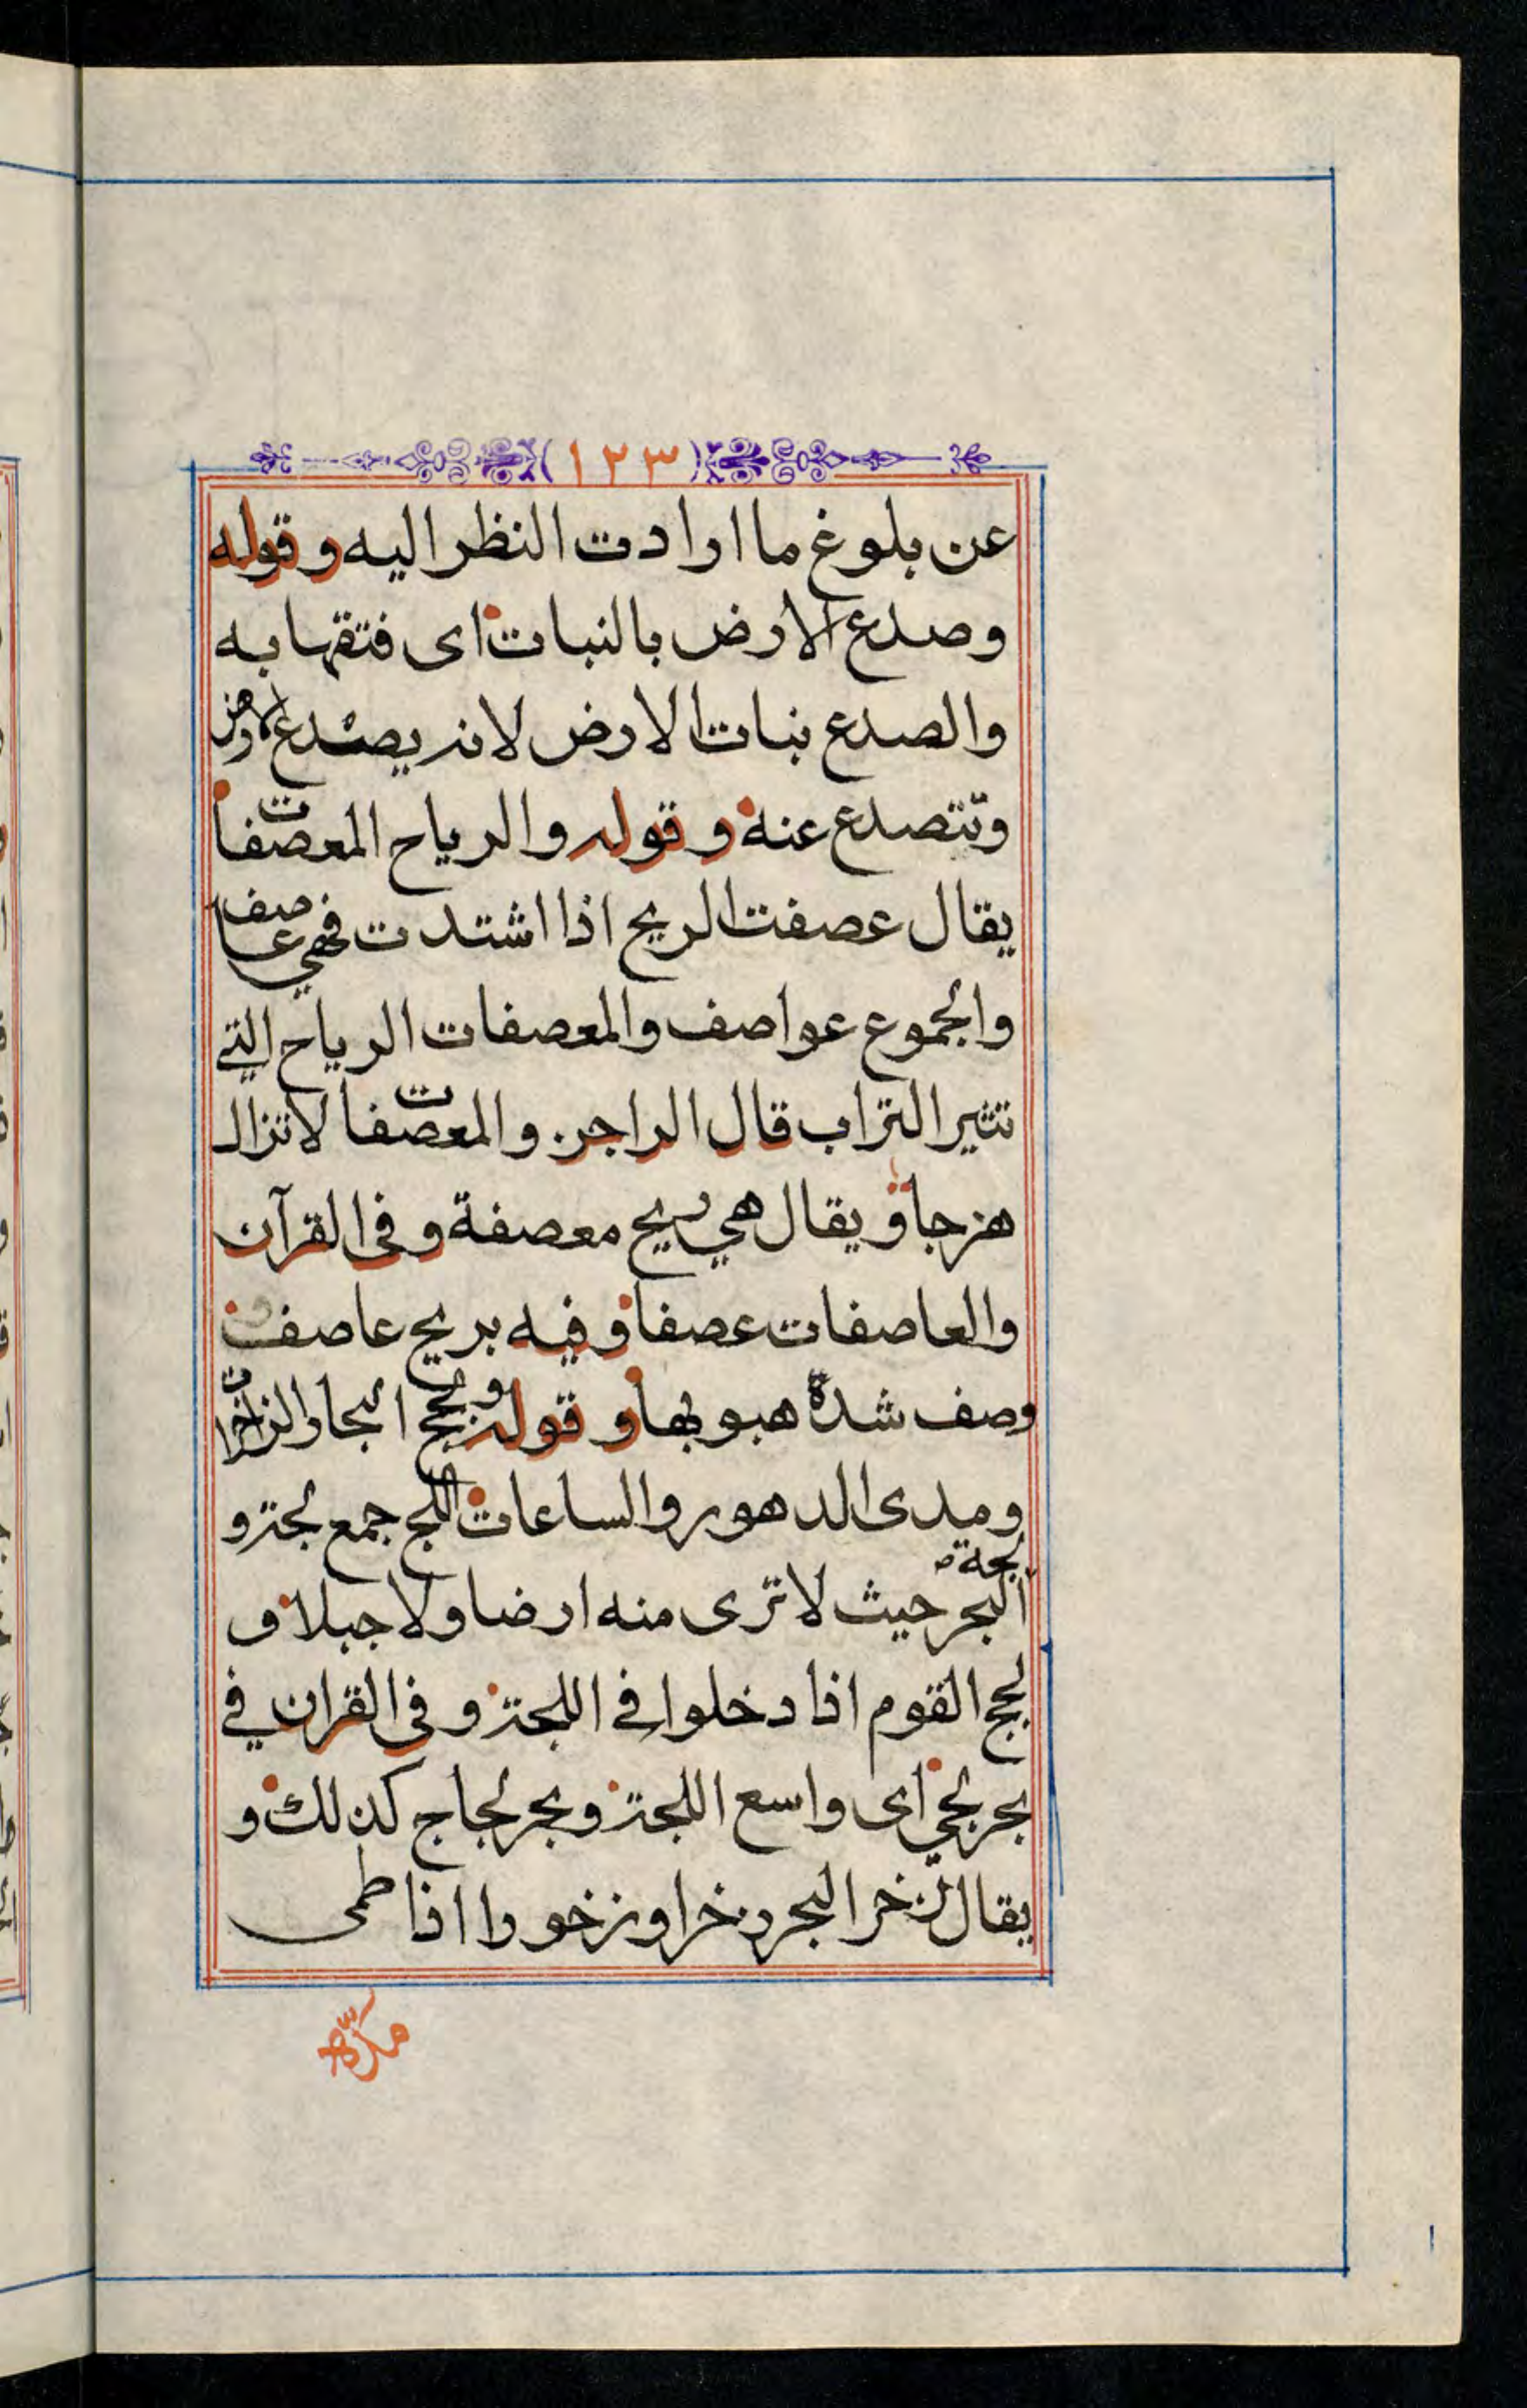 (١٢٣)
عن بلوغ ما ارادت النظر اليه وقوله
وصدع الارض بالنبات اى فتقها به
والصدع نبات الارض لانه يصدع الارض
وتتصدع عنه وقوله والرياح المعصفات
يقال عصفت الريح اذا اشتدت فهي عاصف
والجموع عواصف والمعصفات الرياح التي
تثير التراب قال الراجز والمعصفات لا تزال
هزجا ويقال هي ريح معصفة وفى القرآن
والعاصفات عصفا وفيه بريح عاصف
وصف شدة هبوبها وقوله ولجج البحار الزاخرات
ومدى الدهور والساعات اللجج جمع لجة و
لجة
البحر حيث لا ترى منه ارضا ولا جبلا و
لجج القوم اذا دخلوا في اللجة وفى القران في
بحر لجي اى واسع اللجة وبحر لجاج كذلك و
يقال زخر البحر زخرا وزخورا اذا طمى